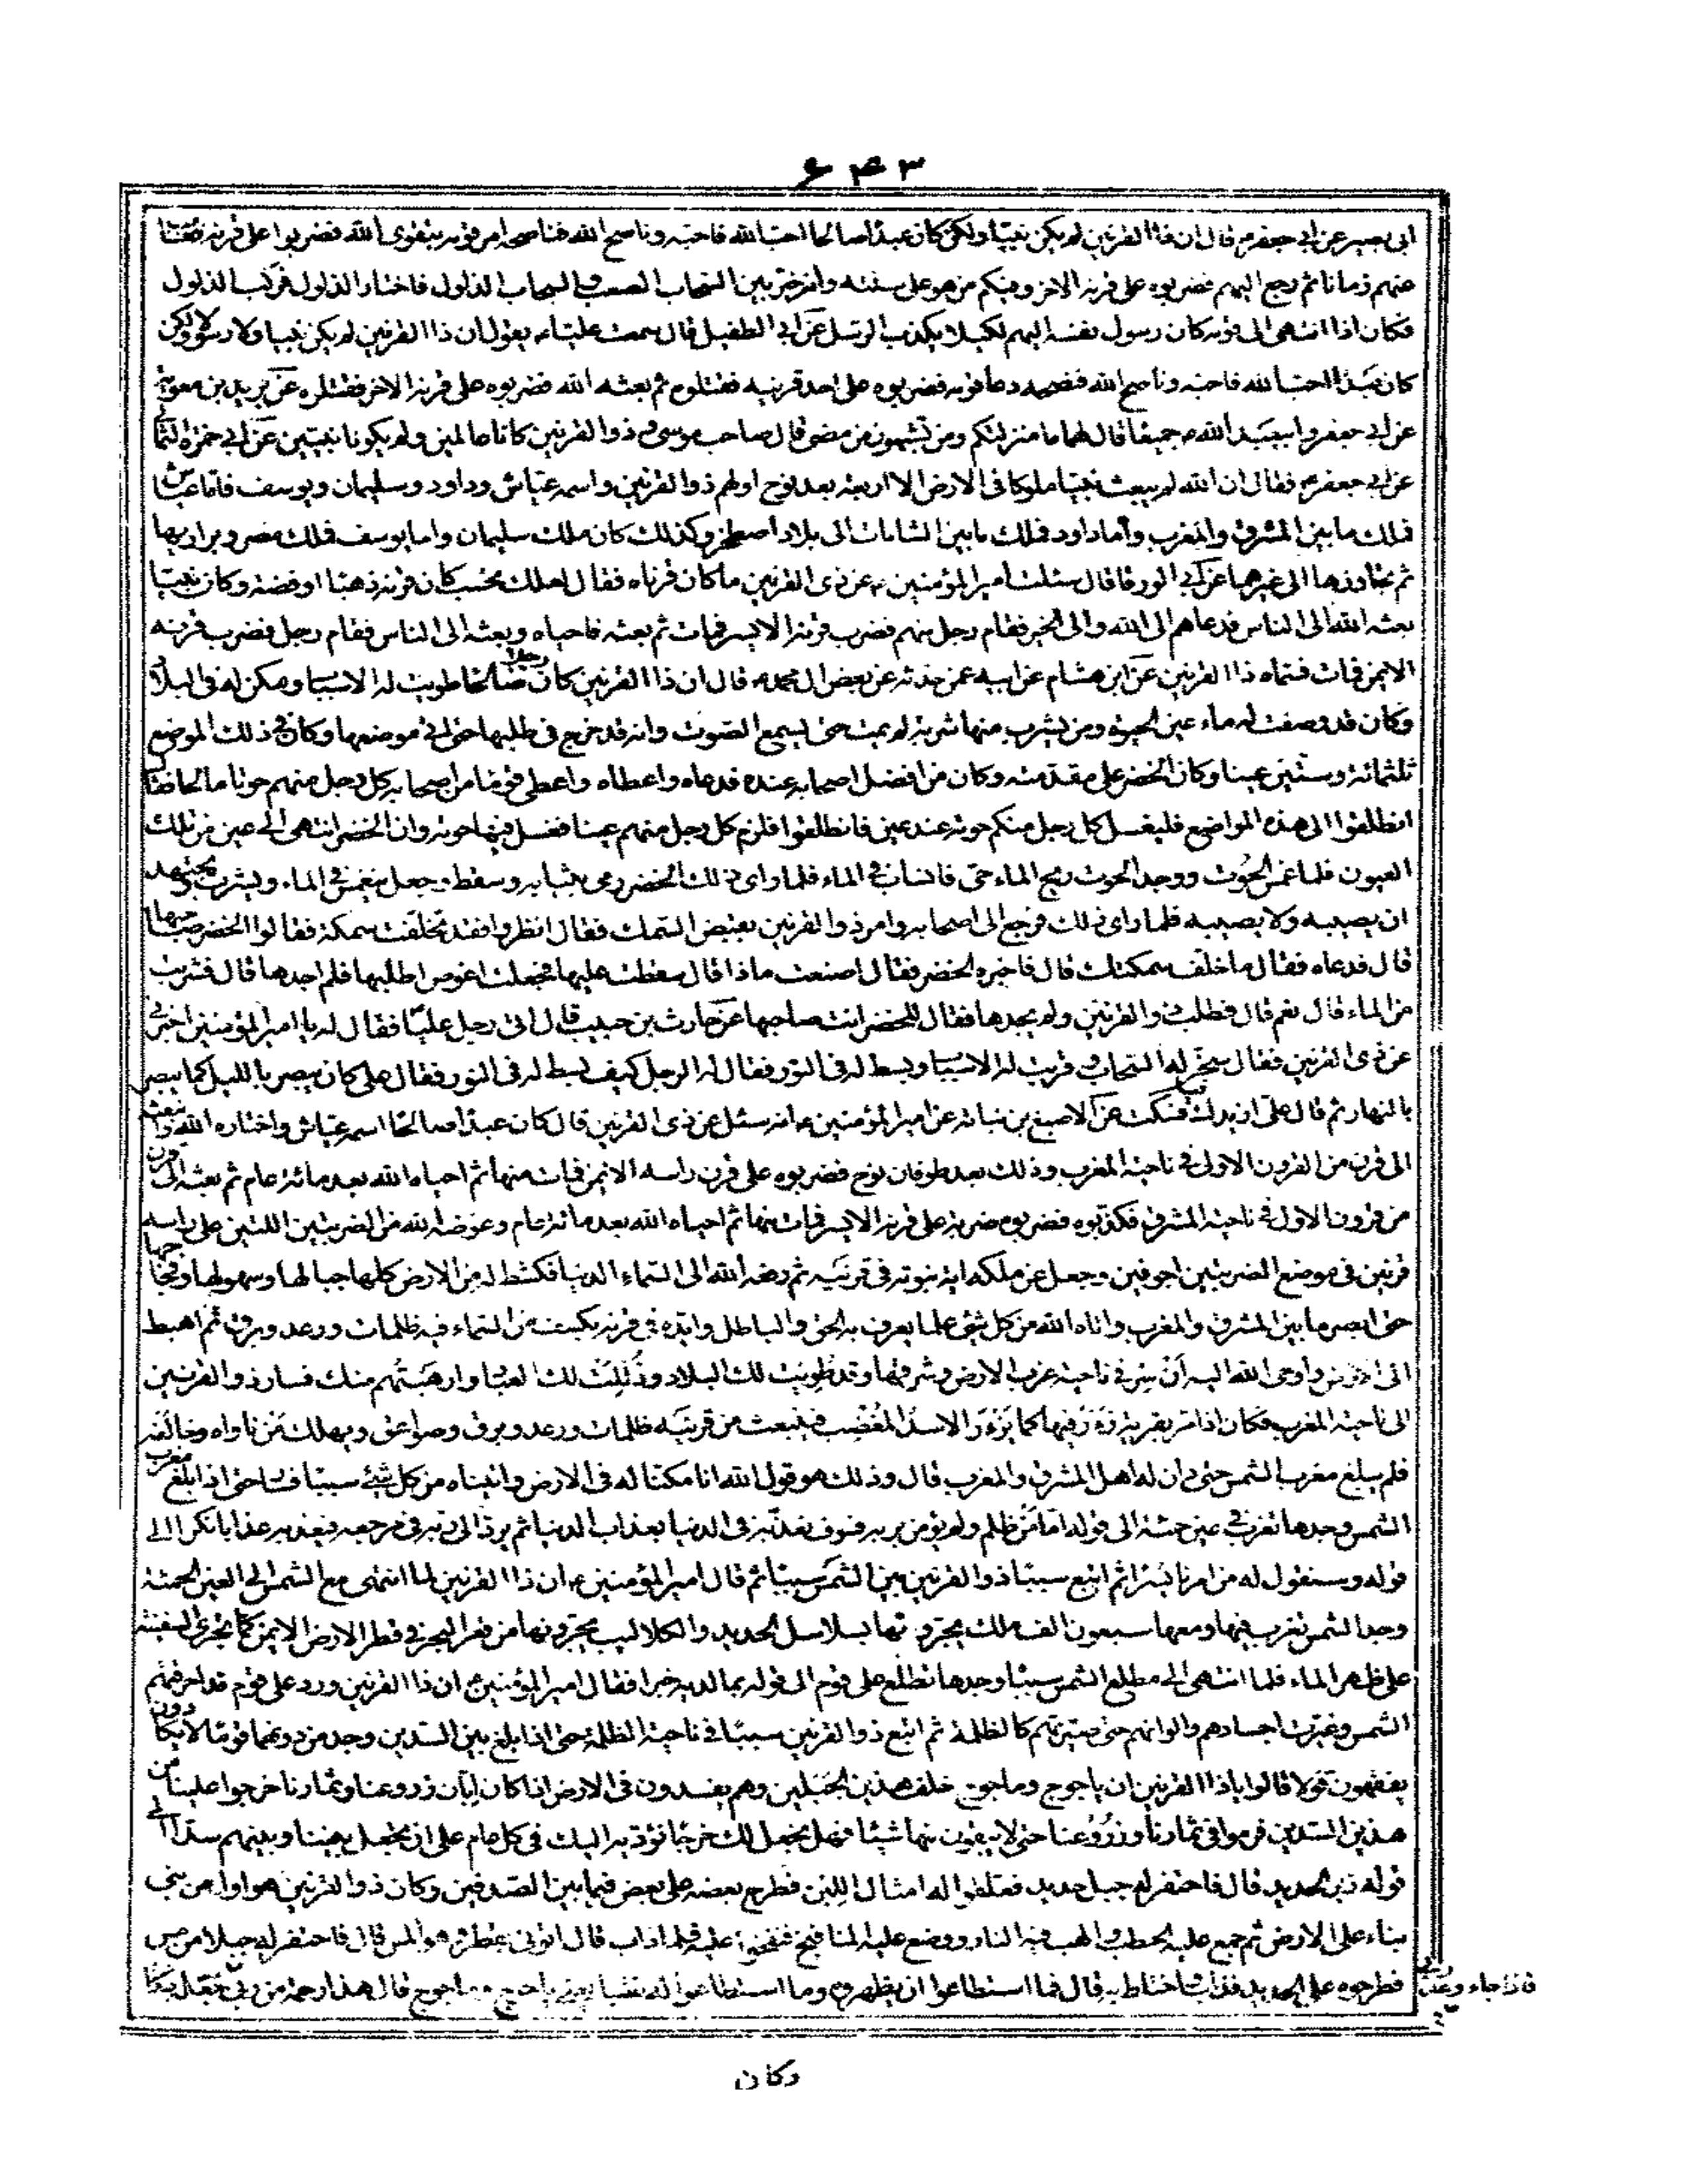 ۶۴۳
ابى بصير عن ابى جعفر ع قال ان ذا القرنين لم يكن نبيّا ولكن كان عبدا صالحا احبّ الله فاحبّه وناصح الله فناصحه امر قومه بتقوى الله فضربوا على قرنه فغاب
عنهم زمانا ثم رجع اليهم فضربوه على قرنه الاخر وفيكم من هو على سنته وانه خيّر بين السّحاب الصعب والسحاب الذلول فاختار الذلول فركب الذلول
فكان اذا انتهى الى قوم كان رسول نفسه اليهم لكيلا يكذب الرسل عن ابى الطفيل قال سمعت عليّا ع يقول ان ذا القرنين لم يكن نبيا ولا رسولا ولكن
كان عبدا احبّ الله فاحبّه وناصح الله فنصحه دعا قومه فضربوه على احد قرنيه فقتلوه ثم بعثه الله فضربوه على قرنه الاخر فقتلوه عن بريد بن معوية
عن ابى جعفر وابيعبد الله ع جميعا قال لهما ما منزلتكم ومن تشبهون من مضى قال صاحب موسى وذو القرنين كانا عالمين ولم يكونا نبيّين عن ابى حمزة الثمالى
عن ابى جعفر ع فقال ان الله لم يبعث نبيّا ملوكا فى الارض الا اربعة بعد نوح اولهم ذو القرنين واسمه عيّاش وداود وسليمان ويوسف فامّا عيّاش
فملك ما بين المشرق والمغرب وأما داود فملك ما بين الشامات الى بلاد اصطخر وكذلك كان ملك سليمان واما يوسف فملك مصر وبراريها
ثم يتجاوزها الى غيرها عن ابى الورقا قال سئلت امير المؤمنين ع عن ذى القرنين ما كان قرناه فقال لعلك تحسب كان قرنه ذهبا او فضة وكان نبيّا
بعثه الله الى الناس فدعاهم الى الله والى الخير فقام رجل منهم فضرب قرنه الايسر فمات ثم بعثه فاحياه وبعثه الى الناس فقام رجل فضرب قرنه
الايمن فمات فسمّاه ذا القرنين عن ابن هشام عن ابيه عمن حدثه عن بعض ال محمد ع قال ان ذا القرنين كان رجلا صالحا طويت له الاسباب ومكن له فى البلاد
وكان قد وصفت له ماء عين الحيوة ومن يشرب منها شربة لم يمت حتى يسمع الصوت وانه قد خرج فى طلبها حتى اتى موضعها وكان فى ذلك الموضع
ثلثمائة وستين عينا وكان الخضر على مقدّمته وكان من افضل اصحابه عنده فدعاه واعطاه واعطى قوما من اصحابه كل رجل منهم حوتا مالحا فقال
انطلقوا الى هذه المواضع فليغسل كل رجل منكم حوته عند عين فانطلقوا فلزم كل رجل منهم عينا فغسل فيها حوته وان الخضر انتهى الى عين من تلك
العيون فلما غمس الحوت ووجد الحوت ريح الماء حتى فانساب فى الماء فلما راى ذلك الخضر رمى بثيابه وسقط وجعل يرتمس فى الماء ويشرب ويجتهد
ان يصيبه ولا يصيبه فلما راى ذلك فرجع الى اصحابه وامر ذو القرنين بقبض السمك فقال انظروا فقد تخلفت سمكة فقالوا الخضر صاحبها
قال فدعاه فقال ما خلّف سمكتك قال فاخبره الخضر فقال اصنعت ماذا قال سقطت عليها فجعلت اغوص اطلبها فلم اجدها قال فشربت
من الماء قال نعم قال فطلب ذو القرنين ولم يجدها فقال للخضر انت صاحبها عن حارث بن حبيب قال اتى رجل عليّا فقال له يا امير المؤمنين اخبرنى
عن ذى القرنين فقال سخّر له السّحاب وقربت له الاسباب وبسط له فى النور فقال له الرجل كيف بسط له فى النور فقال على كان يبصر بالليل كما يبصر
بالنهار ثم قال على ازيدك فسكت عن الاصبغ بن نباتة عن امير المؤمنين ع انه سئل عن ذى القرنين قال كان عبدا صالحا اسمه عيّاش واختاره الله وابتعثه
الى قرن من القرون الاولى فى ناحية المغرب وذلك بعد طوفان نوح فضربوه على قرن راسه الايمن فمات منها ثم احياه الله بعد مائة عام ثم بعثه الى قرن
من قرون الاول فى ناحية المشرق فكذبوه فضربوه ضربة على قرنه الايسر فمات منها ثم احياه الله بعد مائة عام وعوّضه الله من الضربتين اللتين على راسه
قرنين فى موضع الضربتين اجوفين وجعل عز ملكه اية نبوته فى قرنيه ثم رفعه الله الى السّماء الدنيا فكشط له من الارض كلها جبالها وسهولها وفجاجها
حتى ابصر ما بين المشرق والمغرب واتاه الله من كل شئ علما يعرف به الحق والباطل وايّده فى قرنه بكسف من السّماء فيه ظلمات ورعد وبرق ثم اهبط
الى الارض واوحى الله اليه أن سِر فى ناحية غرب الارض وشرقها وقد طويت لك البلاد وذُلّلت لك العباد وارهبتهم منك فسار ذو القرنين
الى ناحية المغرب فكان اذا مر بقرية زءر فيها كما يزءر الاسد المغضب فينبعث من قرنيه ظلمات ورعد وبرق وصواعق ويهلك من ناواه وخالفه
فلم يبلغ مغرب الشمس حتى دان له اهل المشرق والمغرب قال وذلك هو قول الله انا مكنّا له فى الارض واتيناه من كل شئ سببا فسار حتى اذا بلغ مغرب
الشمس وجدها تغرب فى عين حمئة الى قوله اما من ظلم ولم يؤمن بربه فسوف نعذبه فى الدنيا بعذاب الدنيا ثم يردّ الى ربه فى مرجعه فيعذبه عذابا نكرا الى
قوله وسنقول له من امرنا يسرا ثم اتبع سببا ذو القرنين من الشمس سببا ثم قال امير المؤمنين ع ان ذا القرنين لما انتهى مع الشمس الى العين الحمئة
وجد الشمس تغرب فيها ومعها سبعون الف ملك يجرونها بسلاسل الحديد والكلاليب يجرونها من قعر البحر فى قطر الارض الايمن كما تجرى السفينة
على ظهر الماء فلما انتهى الى مطلع الشمس سببا وجدها تطلع على قوم الى قوله بما لديه خبرا فقال امير المؤمنين ع ان ذا القرنين ورد على قوم قد احرقتهم
الشمس وغيّرت اجسادهم والوانهم حتى صيرتهم كالظلمة ثم اتبع ذو القرنين سببا فى ناحية الظلمة حتى اذا بلغ بين السّدين وجد من دونهما قوما لا يكادون
يفقهون قولا قالوا يا ذا القرنين ان ياجوج وماجوج خلف هذين الجبلين وهم يفسدون فى الارض اذا كان ابّان زروعنا وثمارنا خرجوا علينا من
هذين السّدين فرعوا فى ثمارنا وزروعنا حتى لا يبقون منها شيئا فهل نجعل لك خرجا نؤديه اليك فى كل عام على ان تجعل بيننا وبينهم سدا الى
قوله زبر الحديد قال فاحتفر له جبل حديد فقلعوا له امثال اللبن فطرح بعضه على بعض فيما بين الصّدفين وكان ذو القرنين هو اول من بنى
بناء على الارض ثم جمع عليه الحطب والهب فيه النار ووضع عليه المنافيخ فنفخوا عليه فلما ذاب قال اتونى بقطر وهو المس قال فاحتفر له جبلا من مس
فطرحوه على الحديد فذاب معه واختلط به قال فما استطاعوا ان يظهروه وما استطاعوا له نقبا يعنى ياجوج وماجوج قال هذا رحمة من ربى
فاذا جاء وعد ربى
وكان